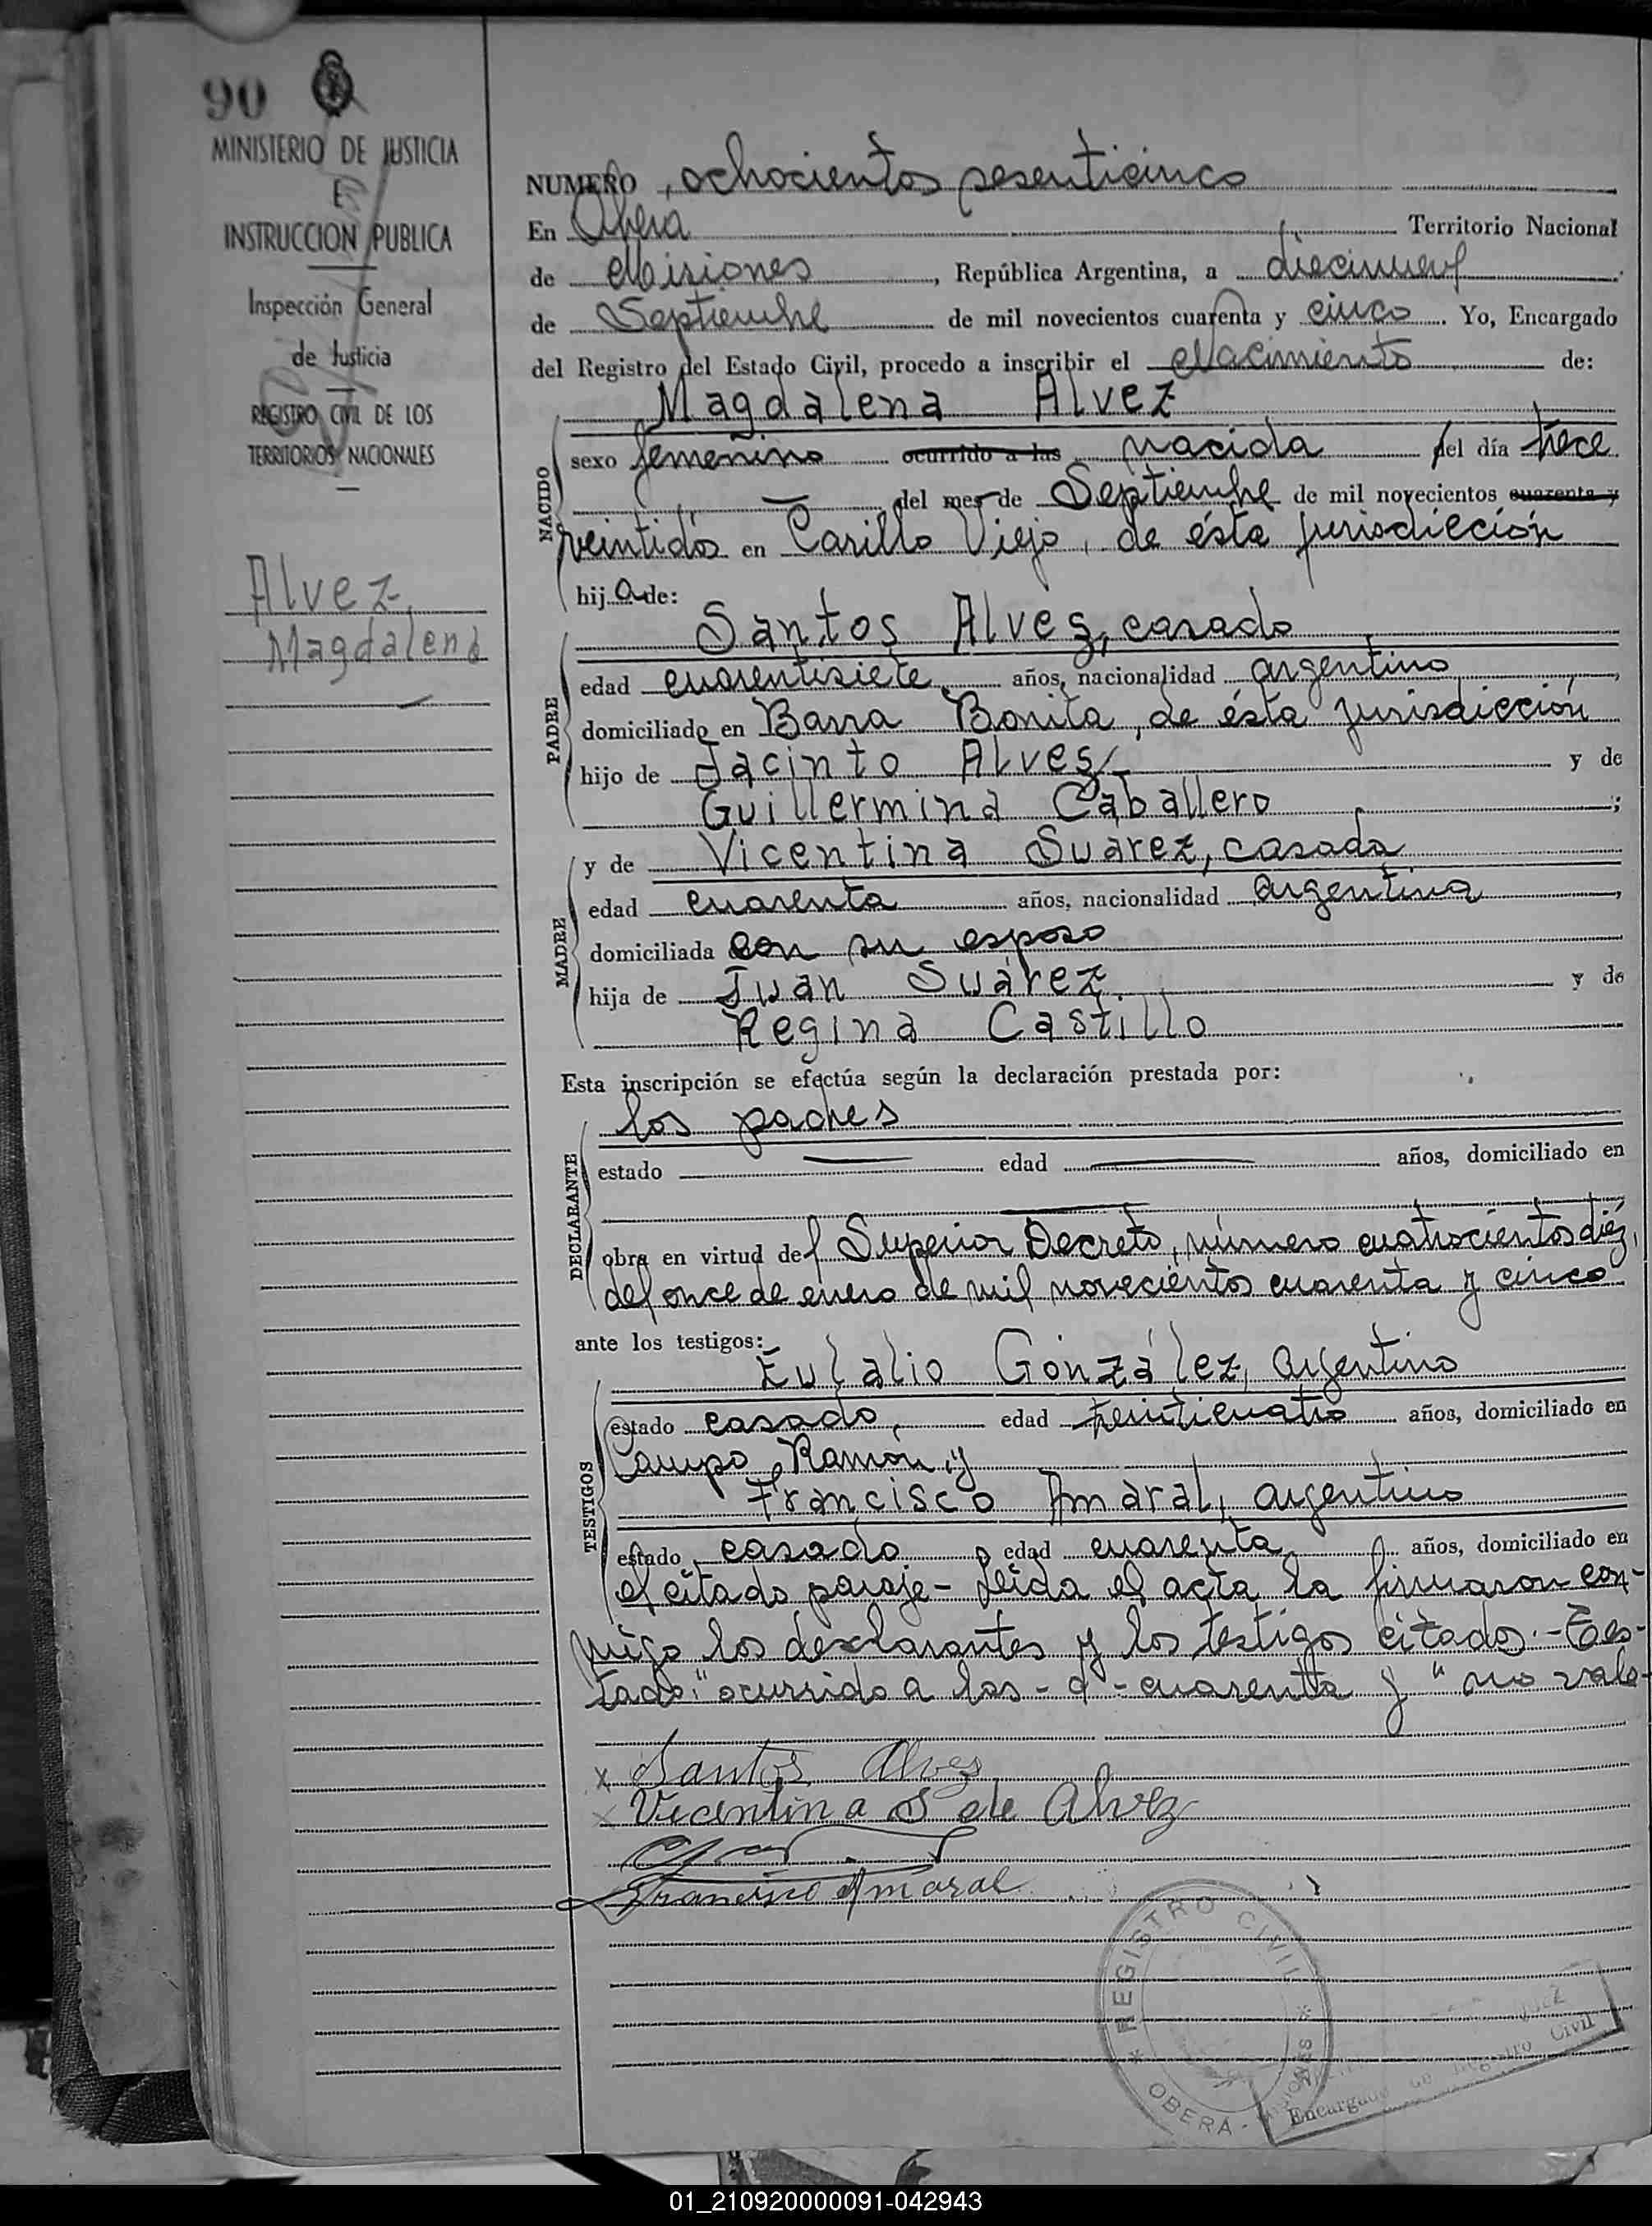 90
MINISTERIO DE JUSTICIA
E
INSTRUCCION PUBLICA
Inspección General
de Justicia
REGISTRO CIVIL DE LOS
TERRITORIOS NACIONALES
Alvez,
Magdalena
NUMERO, ochocientos sesenticinco
En Oberá Territorio Nacional
de Misiones, República Argentina, a diecinueve
de Septiembre de mil novecientos cuarenta y cinco. Yo, Encargado
del Registro del Estado Civil, procedo a inscribir el Nacimiento de:
Magdalena Alvez
NACIDO
sexo femenino ocurrido a las nacida el día trece
del mes de Septiembre de mil novecientos cuarenta y
veintidós en Cerillo Viejo, de ésta jurisdicción
hija de:
Santos Alvez, casado
PADRE
edad cuarentisiete años, nacionalidad argentino,
domiciliado en Barra Bonita, de ésta jurisdicción
hijo de Jacinto Alvez y de
Guillermina Caballero;
y de Vicentina Suárez, casada
MADRE
edad cuarenta años, nacionalidad argentina,
domiciliada con su esposo
hija de Juan Suárez y de
Regina Castillo
Esta inscripción se efectúa según la declaración prestada por:
los padres
DECLARANTE
estado — edad — años, domiciliado en
—
obra en virtud del Superior Decreto, número cuatrocientos diéz,
del once de enero de mil novecientos cuarenta y cinco
ante los testigos:
Eulalio González, argentino
TESTIGOS
estado casado, edad treinticuatro años, domiciliado en
Campo Ramón y
Francisco Amaral, argentino
estado casado edad cuarenta años, domiciliado en
el citado paraje- Leída el acta la firmaron con-
migo los declarantes y los testigos citados.-Tes-
tado: "ocurrido a las - d - cuarenta y" no vale-
x Santos Alvez
x Vicentina S de Alvez
Francisco Amaral
REGISTRO CIVIL
OBERÁ - MISIONES
Encargado de Registro Civil
01_210920000091-042943